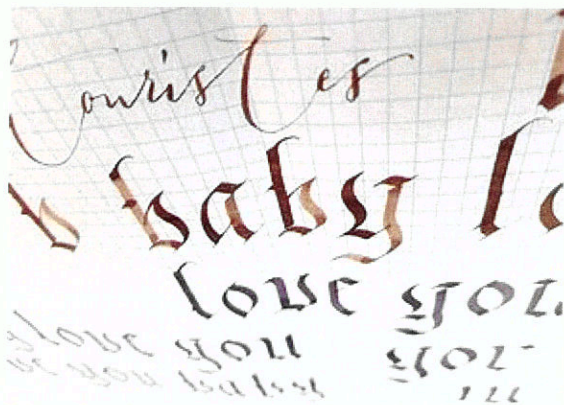 Tourist es
baby lo
love you
love you you
ve you baby